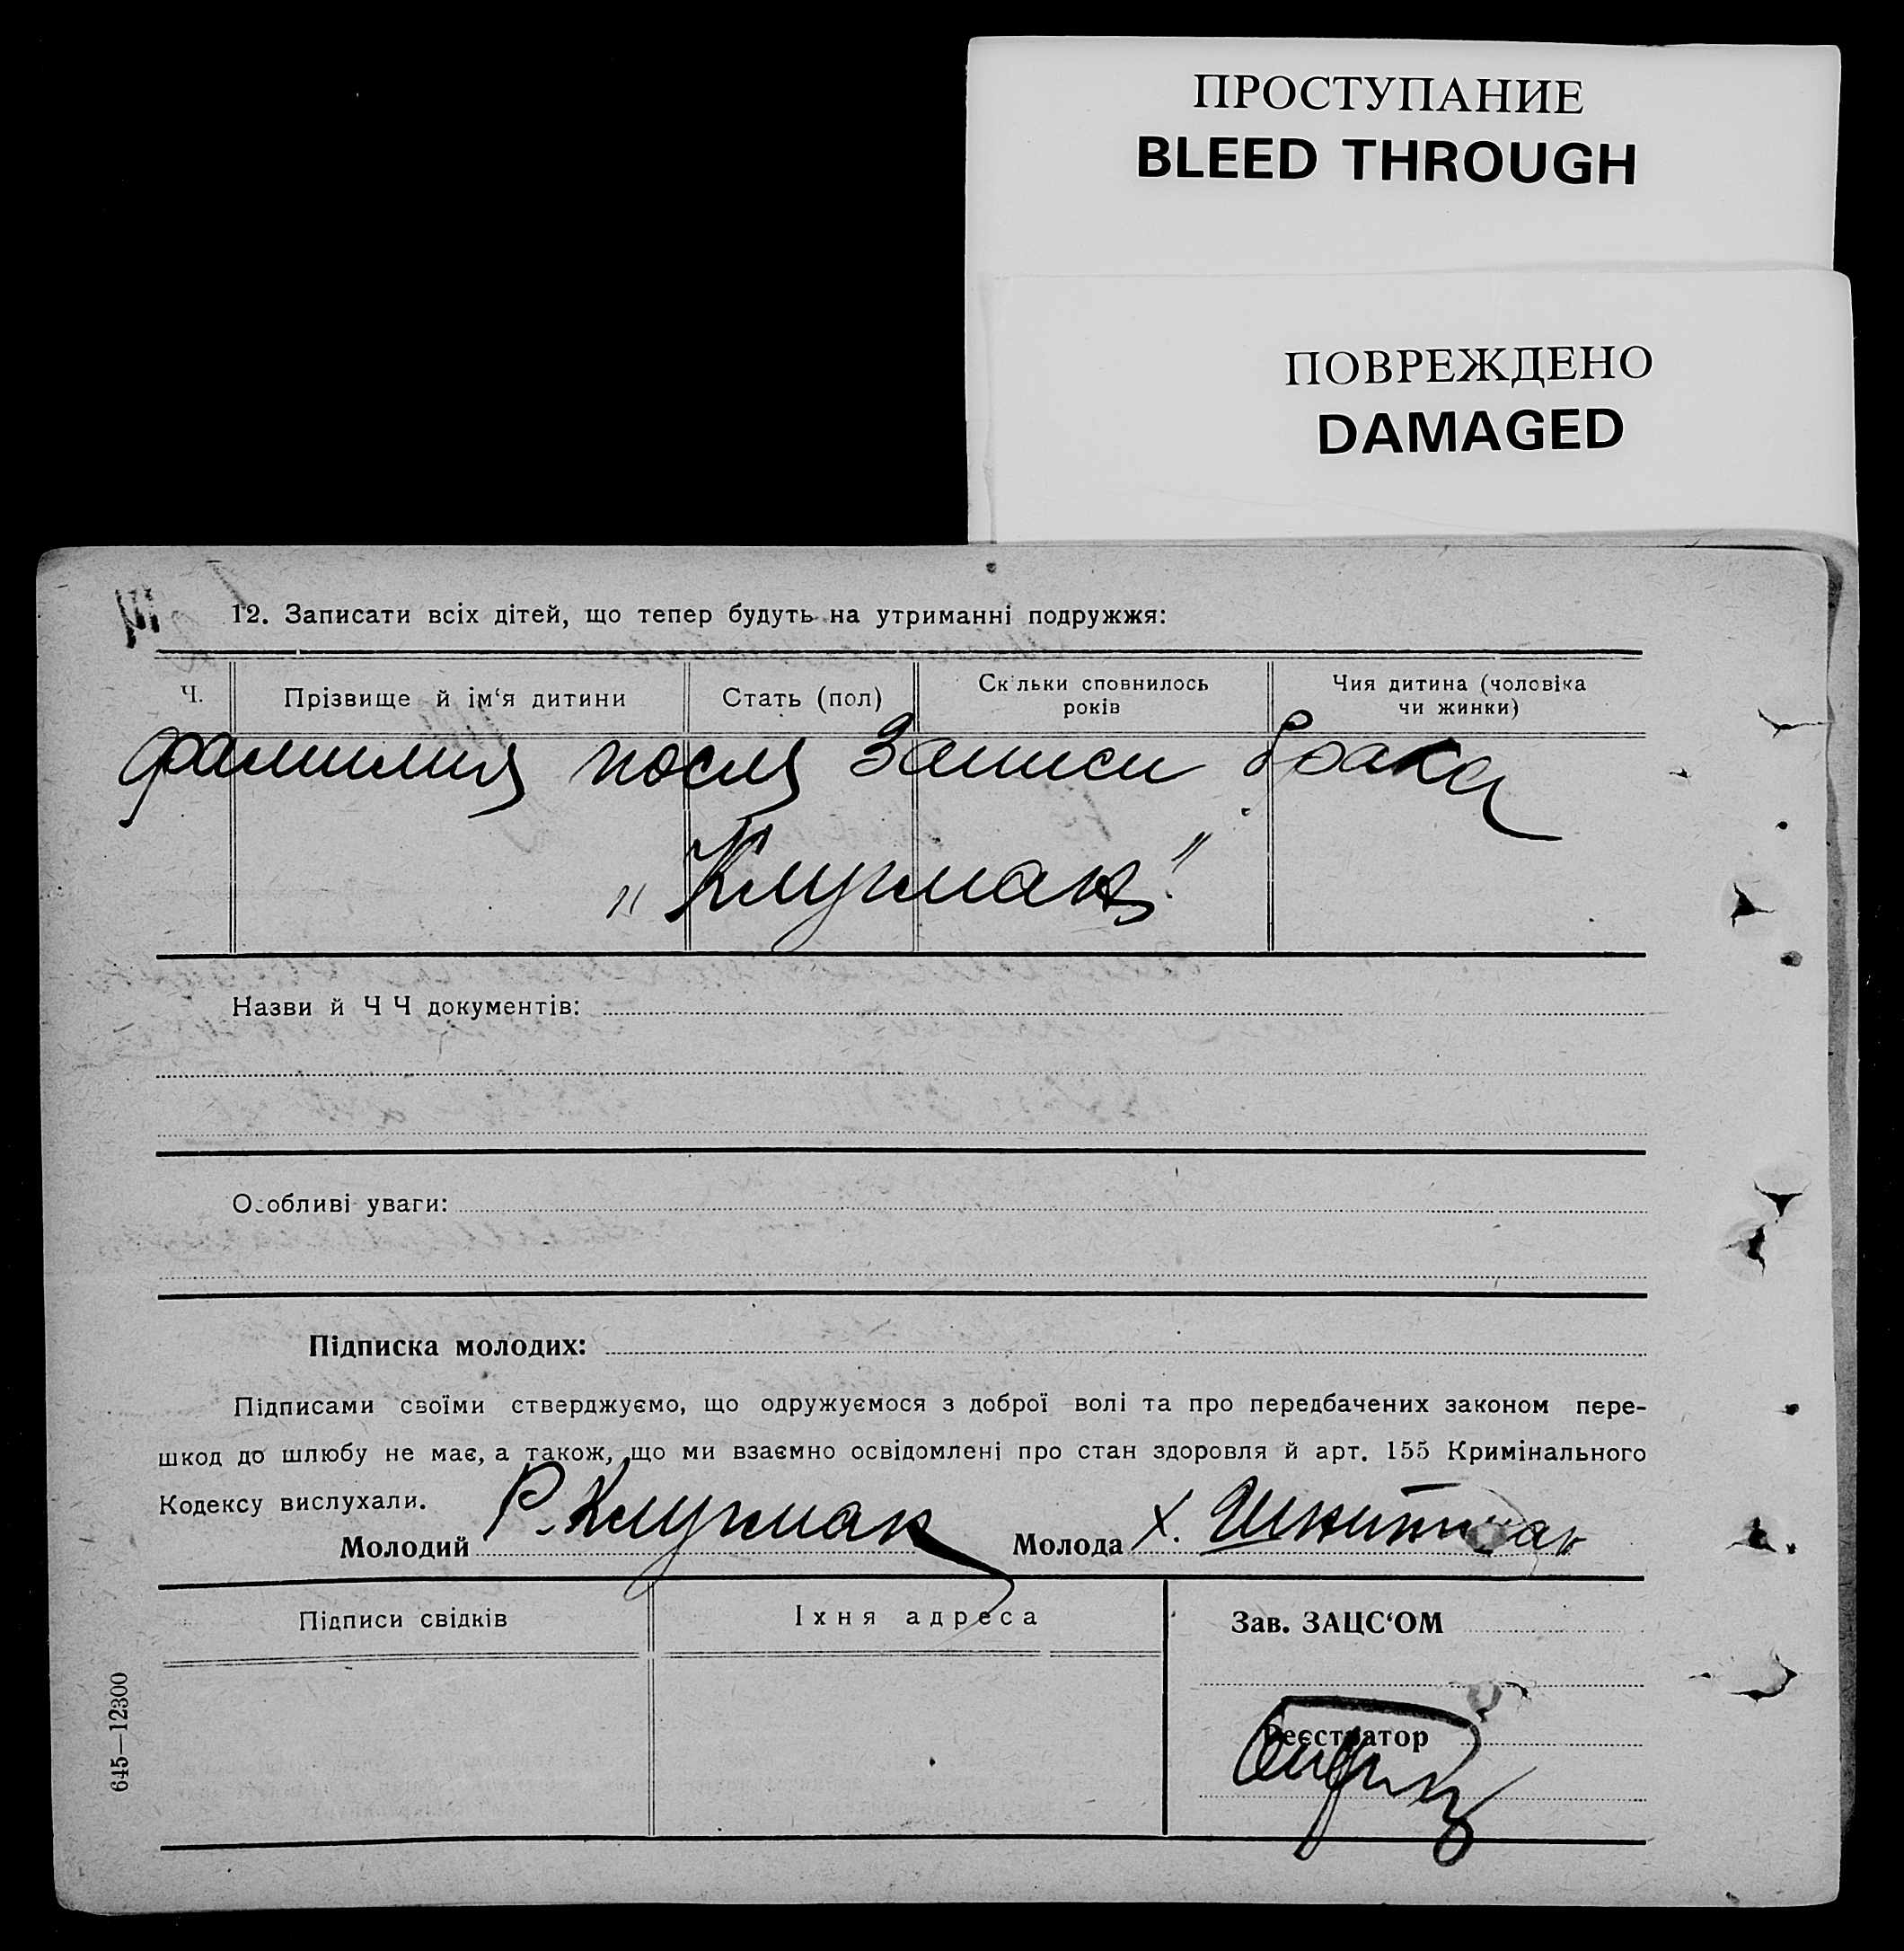 ПРОСТУПАНИЕ
BLEED THROUGH
ПОВРЕЖДЕНО
DAMAGED
12. Записати всіх дітей, що тепер будуть на утриманні подружжя:
Ч. Прізвище й ім‘я дитини Стать (пол) Скільки сповнилось років Чия дитина (чоловіка чи жинки)
фамилия после записи брака
„Клугман"
Назви й Ч Ч документів:
Особливі уваги:
Підписка молодих:
Підписами своїми стверджуємо, що одружуємося з доброї волі та про передбачених законом пере-
шкод до шлюбу не має, а також, що ми взаємно освідомлені про стан здоровля й арт. 155 Кримінального
Кодексу вислухали.
Молодий Р. Клугман Молода Х. Шнитман
Підписи свідків Їхня адреса Зав. ЗАЦС‘ОМ
Реєстратор
645—12300